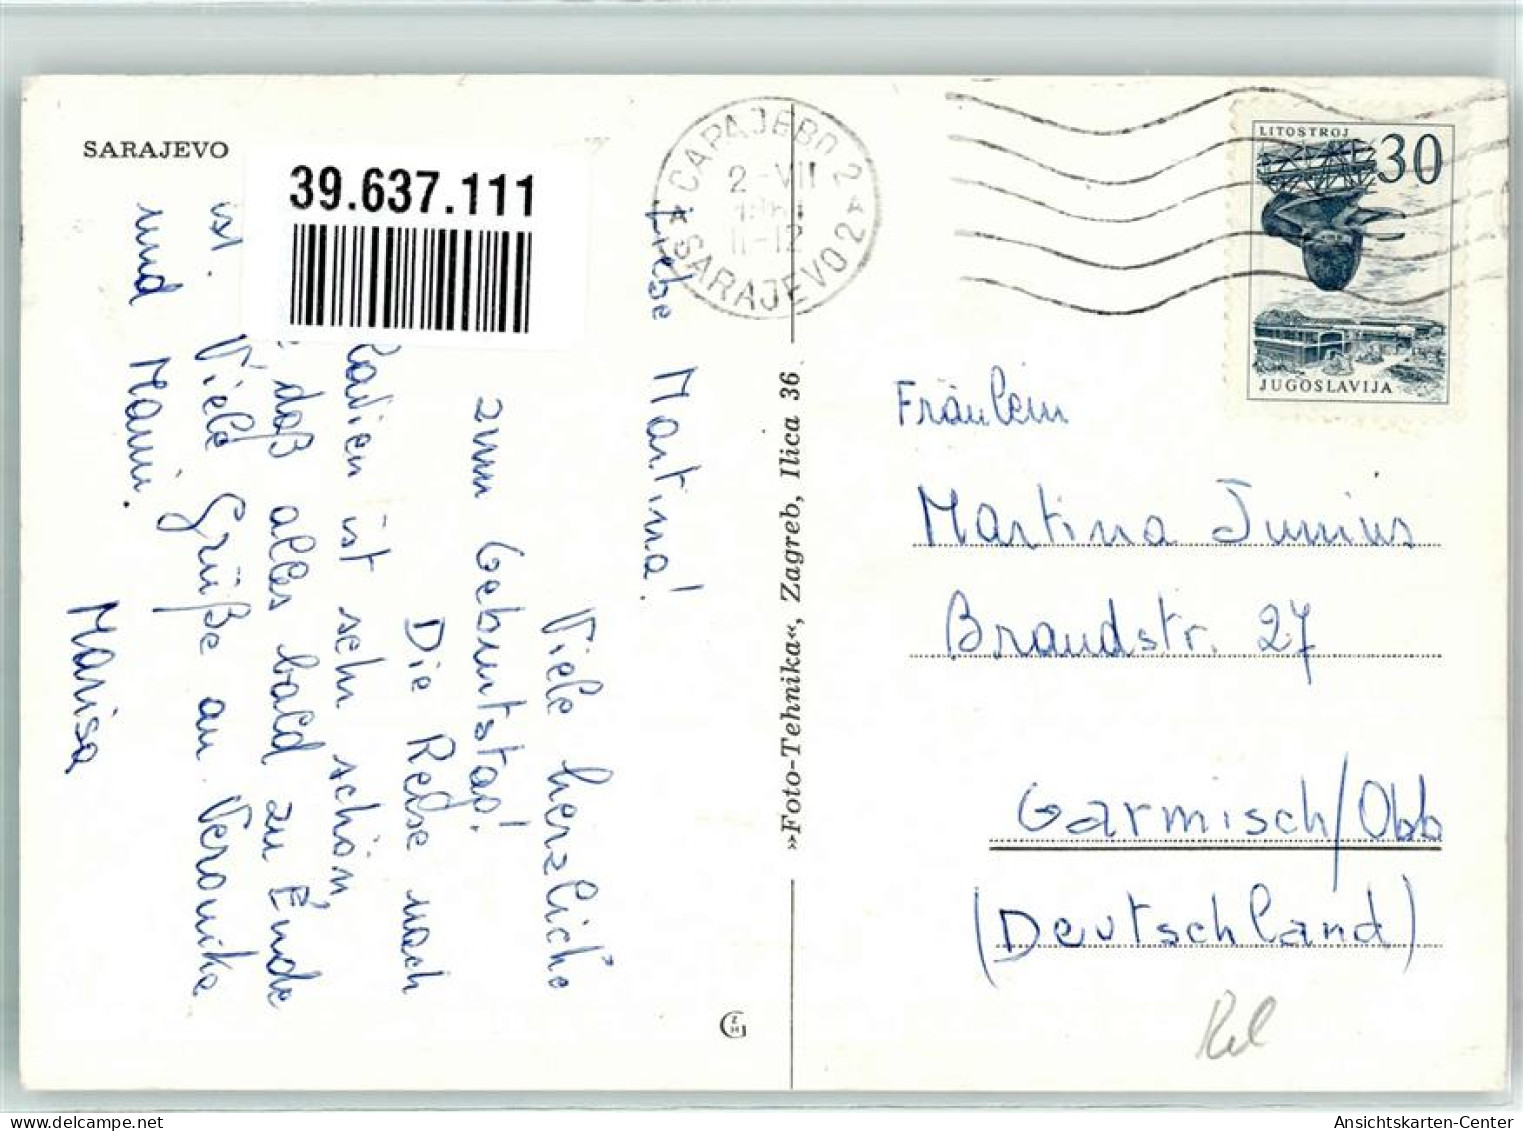 SARAJEVO
39.637.111
Liebe Martina!
Viele herzliche
zum Geburtstag!
Die Reise nach
ist sehr schön,
daß alles bald zu Ende
ist. Viele Grüße an Veronika
und Mami.
Marisa
»Foto-Tehnika«, Zagreb, Ilica 36
САРАЈЕВО 2
2-VII
11-12
SARAJEVO 2
LITOSTROJ
30
JUGOSLAVIJA
Fräulein
Martina Junius
Brandstr. 27
Garmisch/Obb
(Deutschland)
Ansichtskarten-Center